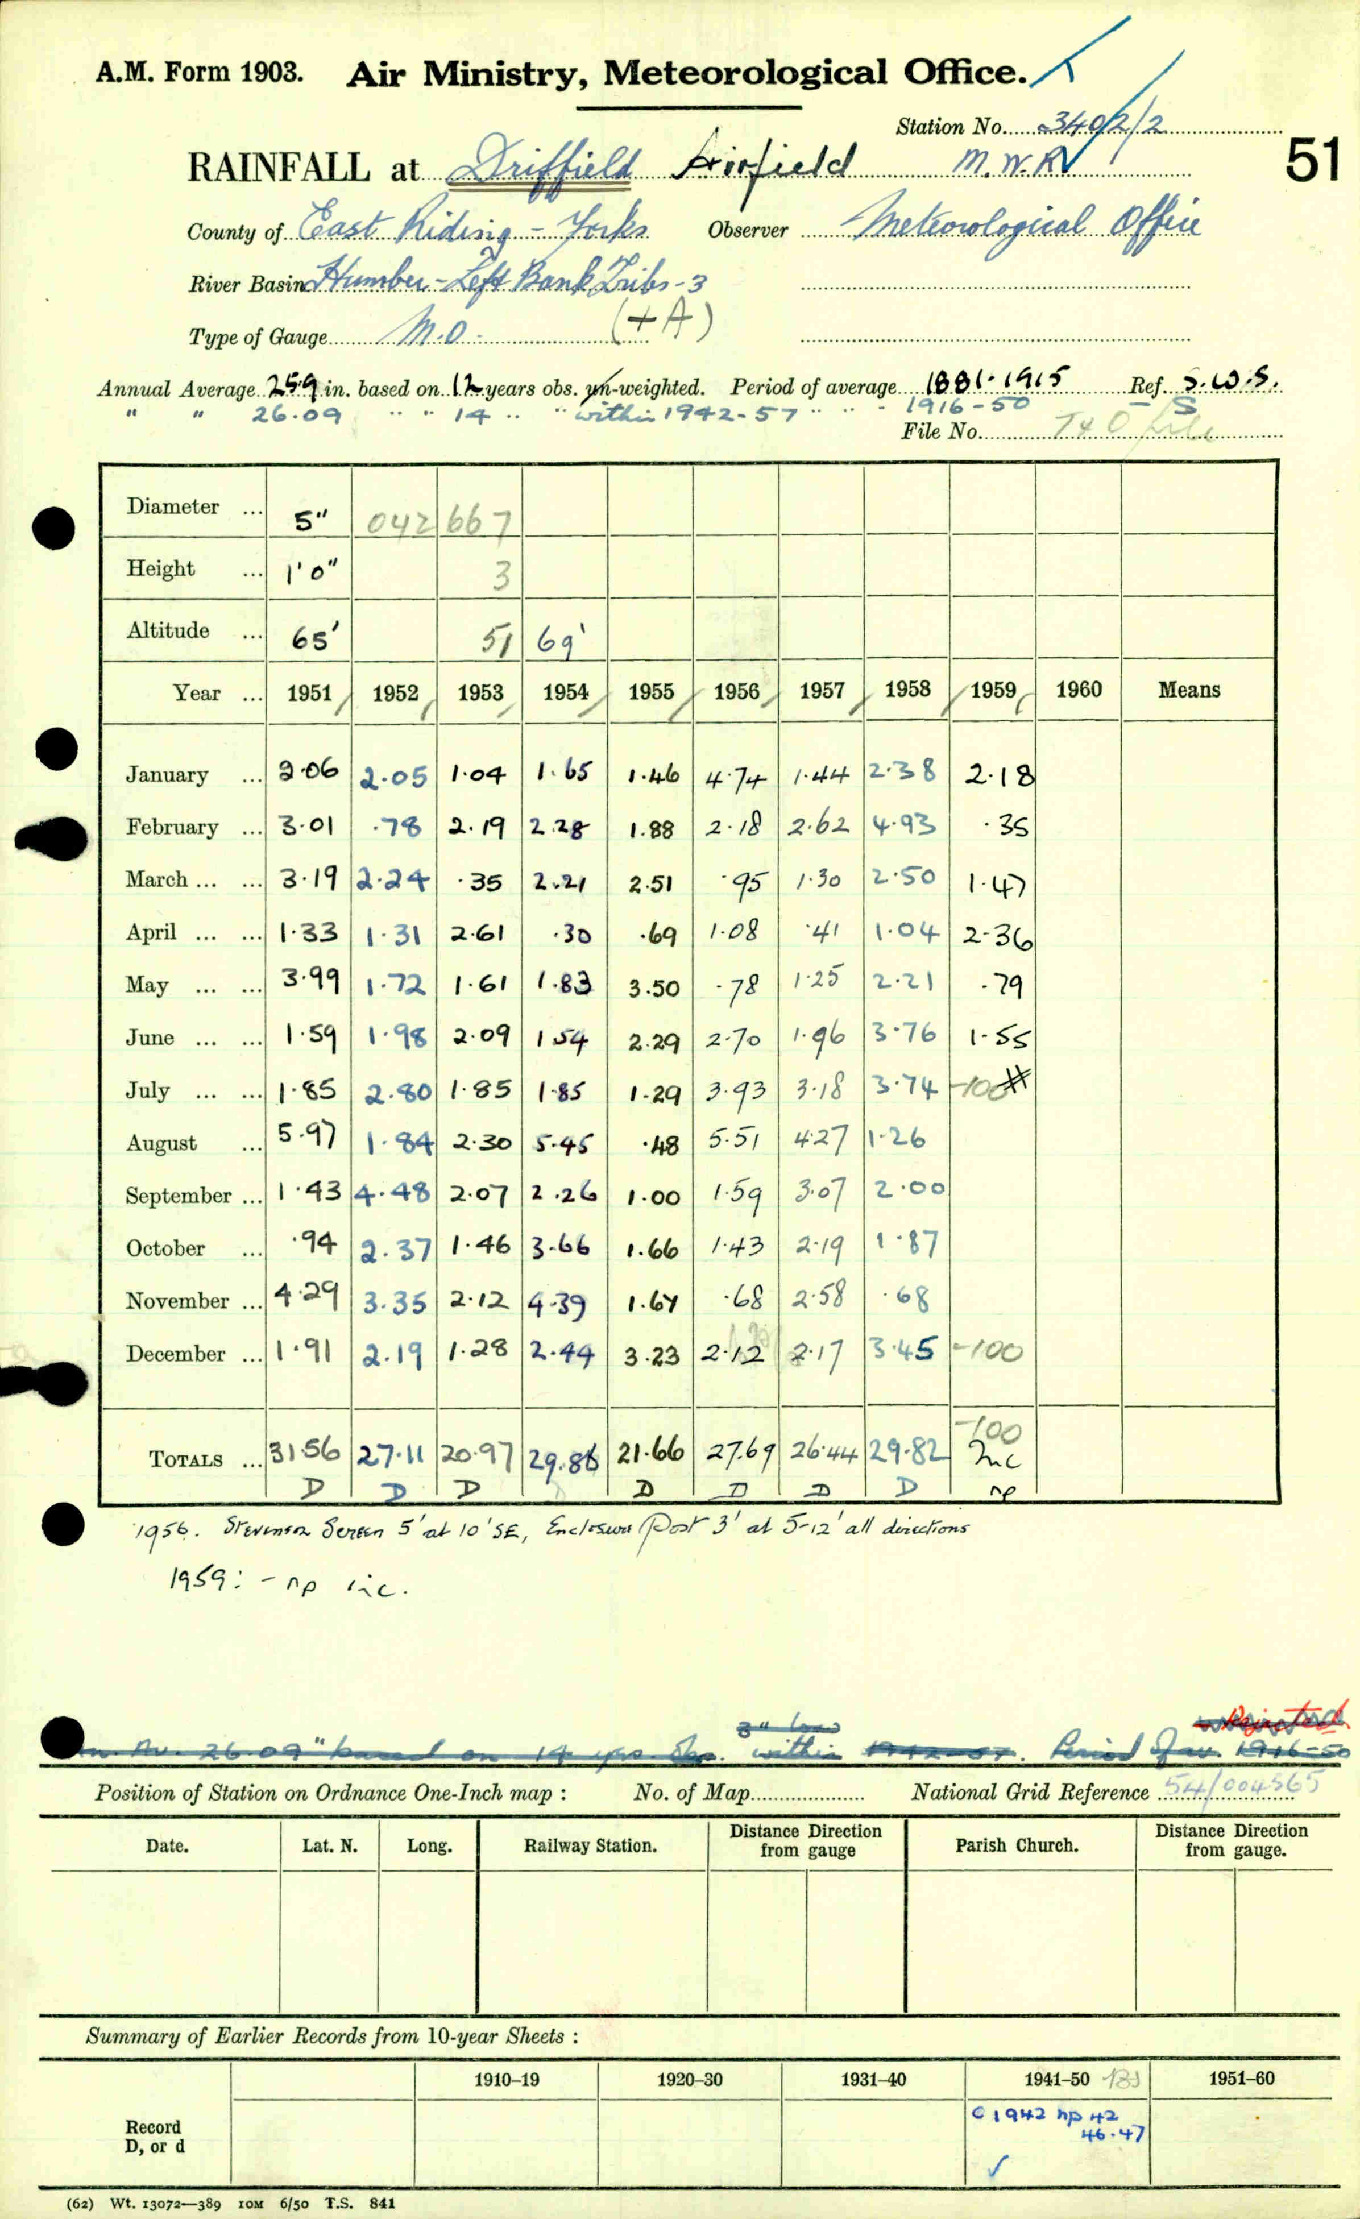 A.M. Form 1903. Air Ministry, Meteorological Office.
Station No. 3402/2
RAINFALL at Driffield Airfield M.W.R. 51
County of East Riding - Yorks Observer Meteorological Office
River Basin Humber - Left Bank Tribs - 3
Type of Gauge M.O. (+A)
Annual Average 25.9 in. based on 12 years obs. un-weighted. Period of average 1881-1915 Ref. S.W.S.
" " 26.09 " " 14 " " within 1942-57 " " - 1916-50 - S
File No.
Diameter ... 5" 042 667
Height ... 1'0" 3
Altitude ... 65' 51 69'
Year ... 1951 1952 1953 1954 1955 1956 1957 1958 1959 1960 Means
January ... 2.06 2.05 1.04 1.65 1.46 4.74 1.44 2.38 2.18
February ... 3.01 .78 2.19 2.28 1.88 2.18 2.62 4.93 .35
March ... ... 3.19 2.24 .35 2.21 2.51 .95 1.30 2.50 1.47
April ... ... 1.33 1.31 2.61 .30 .69 1.08 .41 1.04 2.36
May ... ... 3.99 1.72 1.61 1.83 3.50 .78 1.25 2.21 .79
June ... ... 1.59 1.98 2.09 1.54 2.29 2.70 1.96 3.76 1.55
July ... ... 1.85 2.80 1.85 1.85 1.29 3.93 3.18 3.74 -100 #
August ... 5.97 1.84 2.30 5.45 .48 5.51 4.27 1.26
September ... 1.43 4.48 2.07 2.26 1.00 1.59 3.07 2.00
October ... .94 2.37 1.46 3.66 1.66 1.43 2.19 1.87
November ... 4.29 3.35 2.12 4.39 1.67 .68 2.58 .68
December ... 1.91 2.19 1.28 2.44 3.23 2.12 2.17 3.45 -100
-100
TOTALS ... 31.56 27.11 20.97 29.86 21.66 27.69 26.44 29.82 Inc
D D D D D D D D np
1956. Stevenson Screen 5' at 10' SE, Enclosure Post 3' at 5-12' all directions
1959: - np inc.
3" low Rejected
Av. 26.09" based on 14 yrs. Obs. within 1942-57. Period of av. 1916-50
Position of Station on Ordnance One-Inch map : No. of Map National Grid Reference 54/004565
Date. Lat. N. Long. Railway Station. Distance from gauge Direction Parish Church. Distance from gauge. Direction
Summary of Earlier Records from 10-year Sheets :
1910–19 1920–30 1931–40 1941–50 1951–60
Record D, or d
C 1942 np 42
46.47
✓
(62) Wt. 13072—389 10M 6/50 T.S. 841